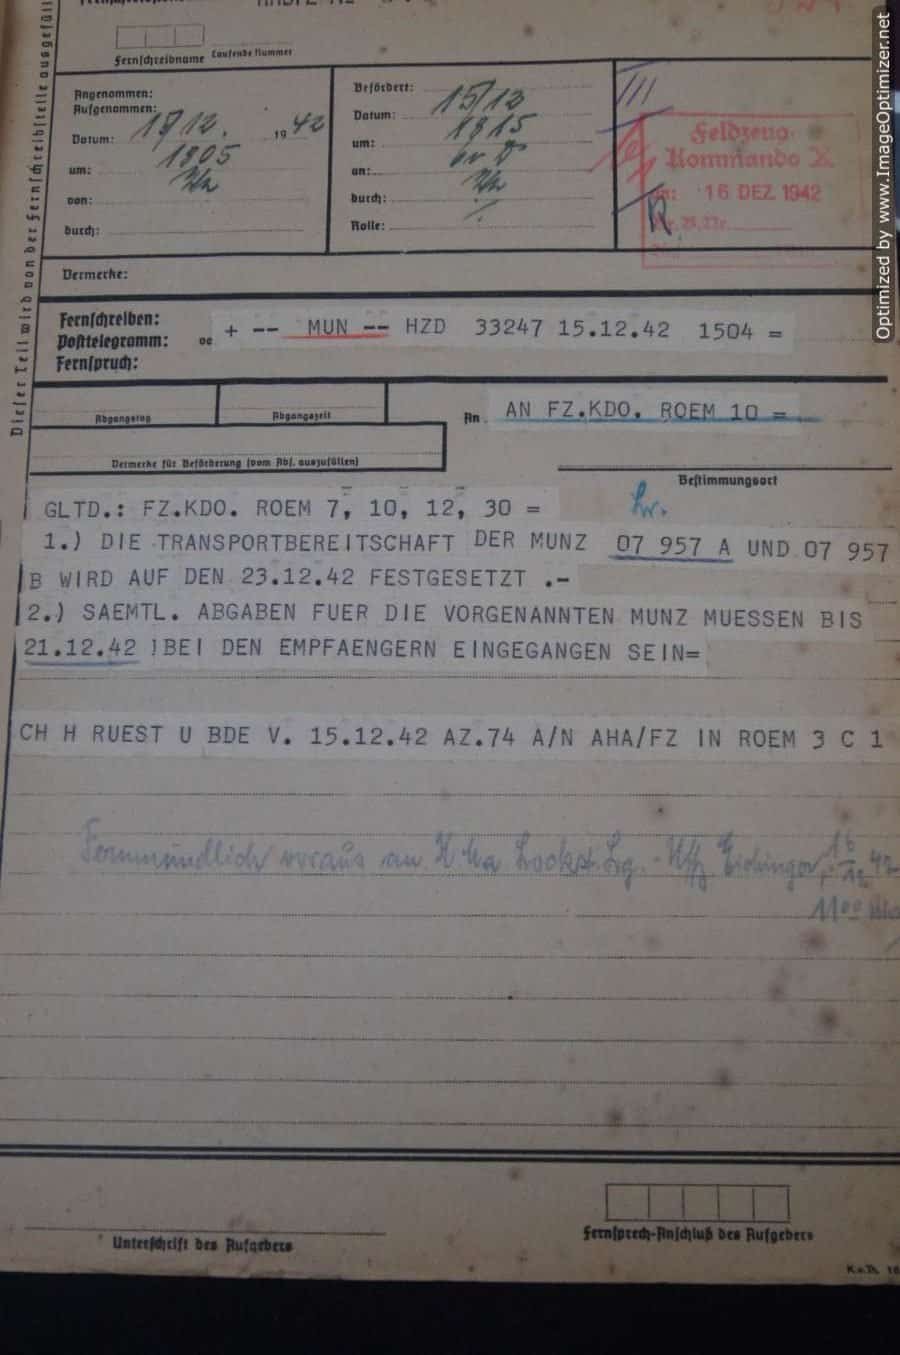 Fernschreibname Laufende Nummer
Angenommen:
Aufgenommen:
Datum: 15/12. 1942
um: 1805
von:
durch:
Befördert:
Datum: 15/12
um: 1815
an:
durch:
Rolle:
Feldzeug
Kommando X
16 DEZ. 1942
Dieser Teil wird von der Fernschreibstelle ausgefüll
Vermerke:
Fernschreiben:
Posttelegramm:
Fernspruch:
+ -- MUN -- HZD 33247 15.12.42 1504 =
Abgangstag
Abgangszeit
An AN FZ.KDO. ROEM 10 =
Vermerke für Beförderung (vom Abs. auszufüllen)
Bestimmungsort
GLTD.: FZ.KDO. ROEM 7, 10, 12, 30 =
1.) DIE TRANSPORTBEREITSCHAFT DER MUNZ 07 957 A UND 07 957
B WIRD AUF DEN 23.12.42 FESTGESETZT .-
2.) SAEMTL. ABGABEN FUER DIE VORGENANNTEN MUNZ MUESSEN BIS
21.12.42 BEI DEN EMPFAENGERN EINGEGANGEN SEIN=
CH H RUEST U BDE V. 15.12.42 AZ.74 A/N AHA/FZ IN ROEM 3 C 1
Fernmündlich voraus an H Ma Lockst. Lg. - Uffz. Eichinger 16/12 42
11⁰⁰
Unterschrift des Aufgebers
Fernsprech-Anschluß des Aufgebers
Optimized by www.ImageOptimizer.net